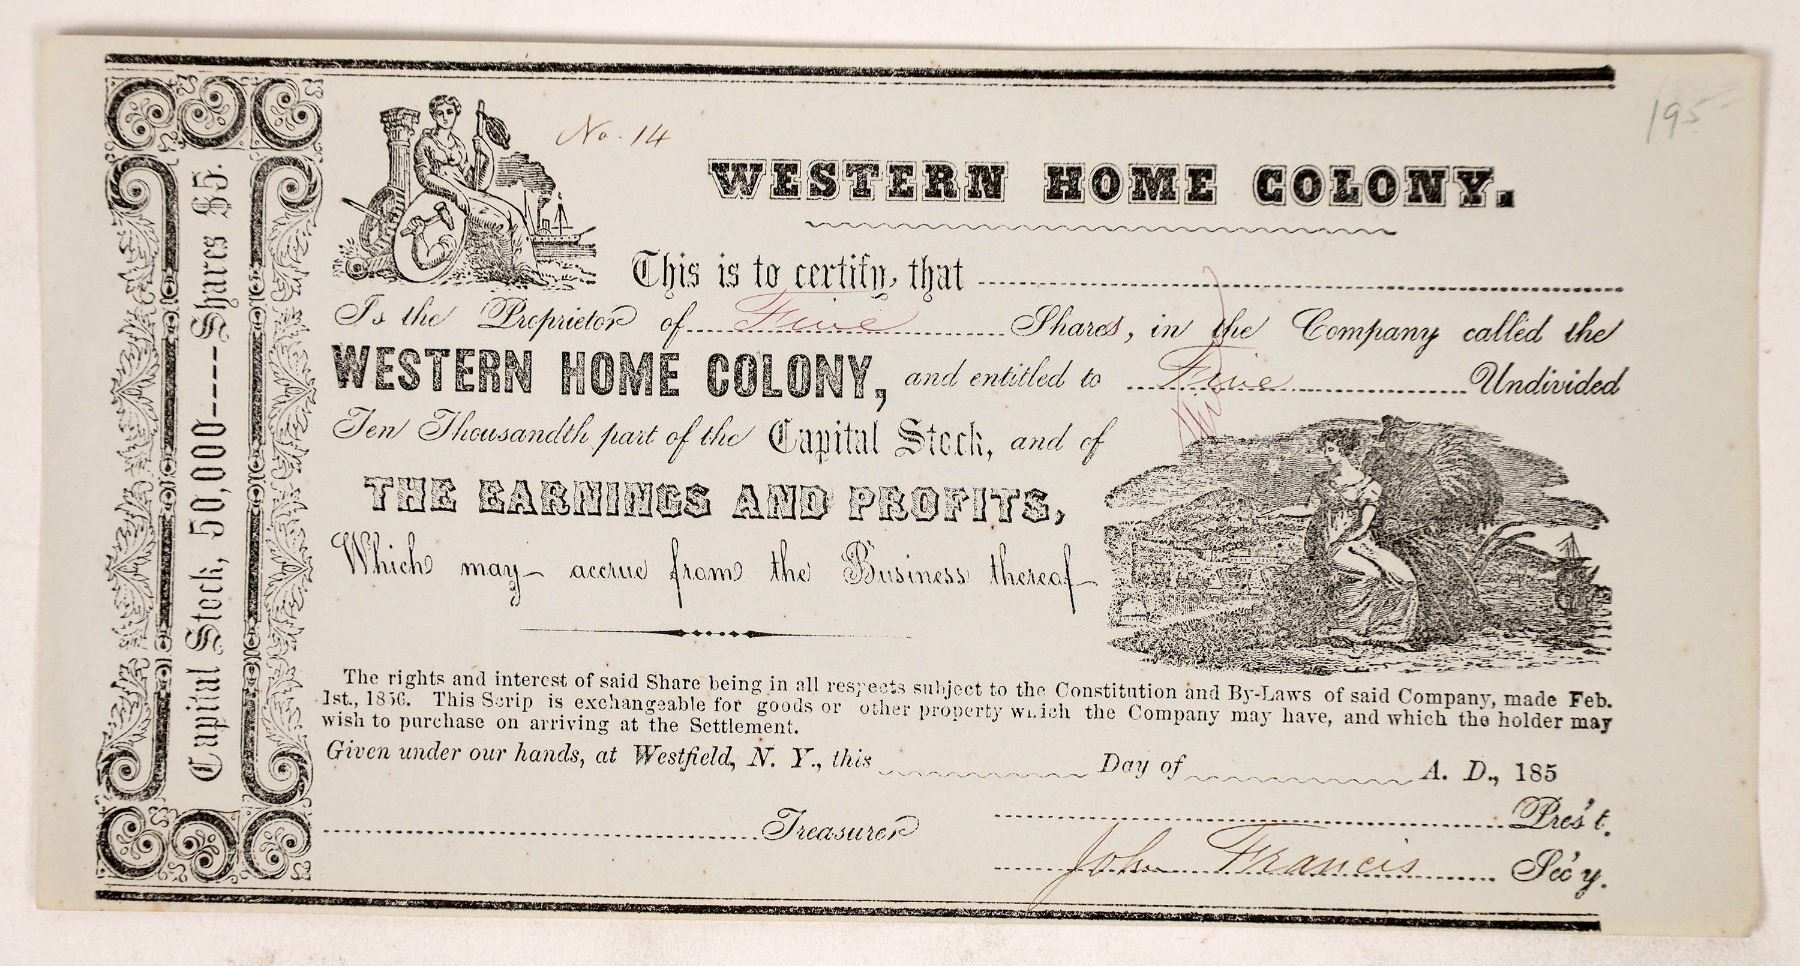 195
No. 14
WESTERN HOME COLONY.
This is to certify, that
Is the Proprietor of Five Shares, in the Company called the
WESTERN HOME COLONY, and entitled to Five Undivided
Ten Thousandth part of the Capital Stock, and of
THE EARNINGS AND PROFITS,
Which may accrue from the Business thereof
The rights and interest of said Share being in all respects subject to the Constitution and By-Laws of said Company, made Feb.
1st., 1856. This Scrip is exchangeable for goods or other property which the Company may have, and which the holder may
wish to purchase on arriving at the Settlement.
Given under our hands, at Westfield, N. Y., this Day of A. D., 185
Pres't.
Treasurer
John Francis Sec'y.
Capital Stock, 50,000----Shares $5.